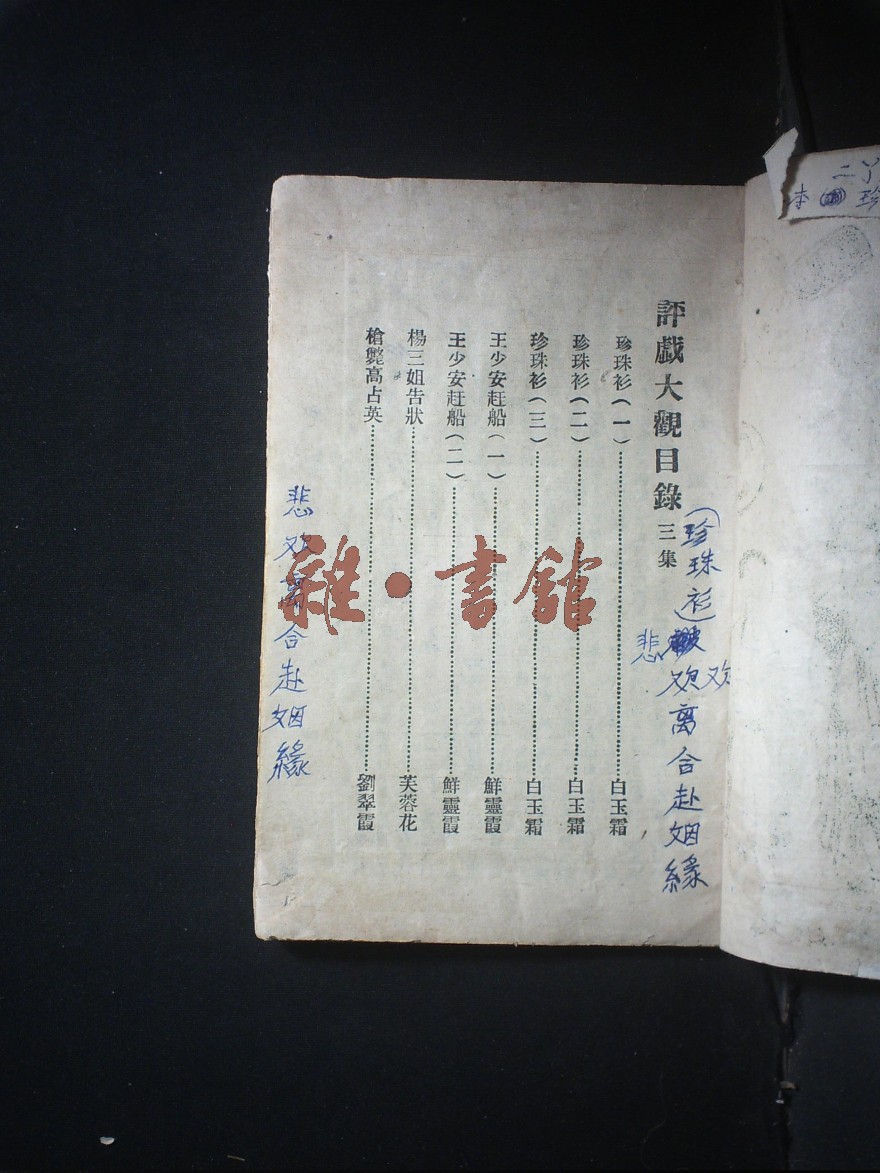 評戲大觀目錄 三集
珍珠衫(一)……白玉霜
珍珠衫(二)……白玉霜
珍珠衫(三)……白玉霜
王少安赶船(一)……鮮靈霞
王少安赶船(二)……鮮靈霞
楊三姐告狀……芙蓉花
槍斃高占英……劉翠霞
(珍珠衫)
悲欢离合赴姻緣
欢
悲欢离合赴姻緣
雜·書館
二丫
本 珍